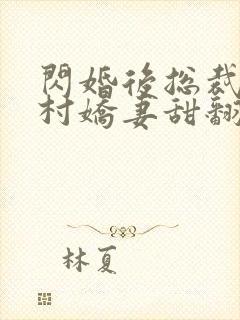 閃婚後总裁
村嬌妻甜翻
林夏